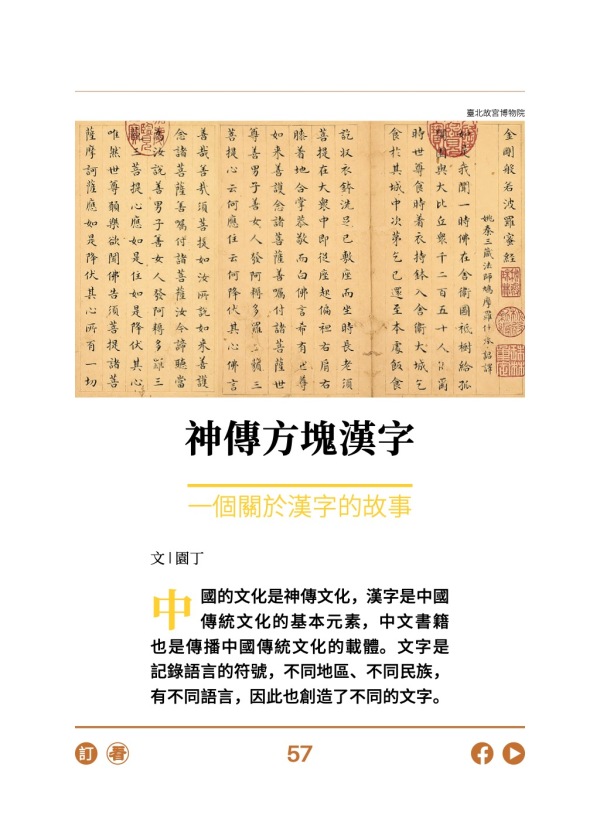 臺北故宮博物院
金剛般若波羅蜜經
姚秦三藏法師鳩摩羅什奉詔譯
如是我聞一時佛在舍衛國祇樹給孤
獨園與大比丘衆千二百五十人俱爾
時世尊食時着衣持鉢入舍衛大城乞
食於其城中次第乞已還至本處飯食
訖收衣鉢洗足已敷座而坐時長老須
菩提在大衆中即從座起偏袒右肩右
膝着地合掌恭敬而白佛言希有世尊
如来善護念諸菩薩善囑付諸菩薩世
尊善男子善女人發阿耨多羅三藐三
菩提心云何應住云何降伏其心佛言
善哉善哉須菩提如汝所說如来善護
念諸菩薩善囑付諸菩薩汝今諦聽當
為汝說善男子善女人發阿耨多羅三
藐三菩提心應如是住如是降伏其心
唯然世尊願樂欲聞佛告須菩提諸菩
薩摩訶薩應如是降伏其心所有一切
神傳方塊漢字
一個關於漢字的故事
文 | 園丁
中國的文化是神傳文化，漢字是中國
傳統文化的基本元素，中文書籍
也是傳播中國傳統文化的載體。文字是
記錄語言的符號，不同地區、不同民族，
有不同語言，因此也創造了不同的文字。
訂 看 57